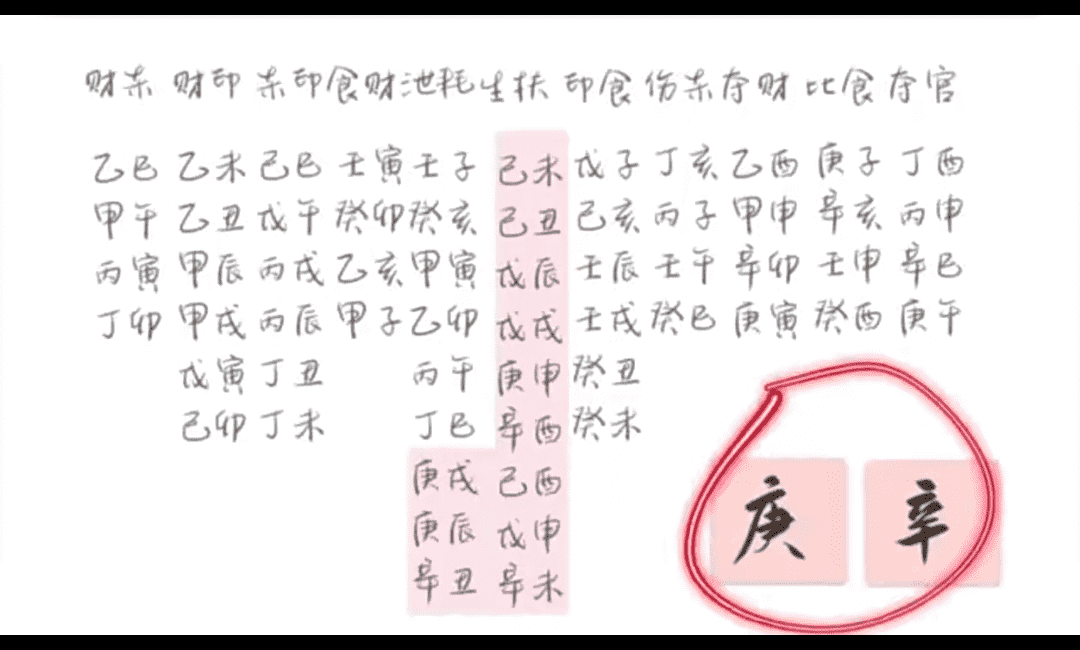 财杀 财印 杀印食财泄耗生扶 印食 伤杀夺财 比食夺官
乙巳 乙未 己巳 壬寅 壬子 己未 戊子 丁亥 乙酉 庚子 丁酉
甲午 乙丑 戊午 癸卯 癸亥 己丑 己亥 丙子 甲申 辛亥 丙申
丙寅 甲辰 丙戌 乙亥 甲寅 戊辰 壬辰 壬午 辛卯 壬申 辛巳
丁卯 甲戌 丙辰 甲子 乙卯 戊戌 壬戌 癸巳 庚寅 癸酉 庚午
戊寅 丁丑 丙午 庚申 癸丑
己卯 丁未 丁巳 辛酉 癸未
庚戌 己酉
庚辰 戊申
辛丑 辛未
庚 辛